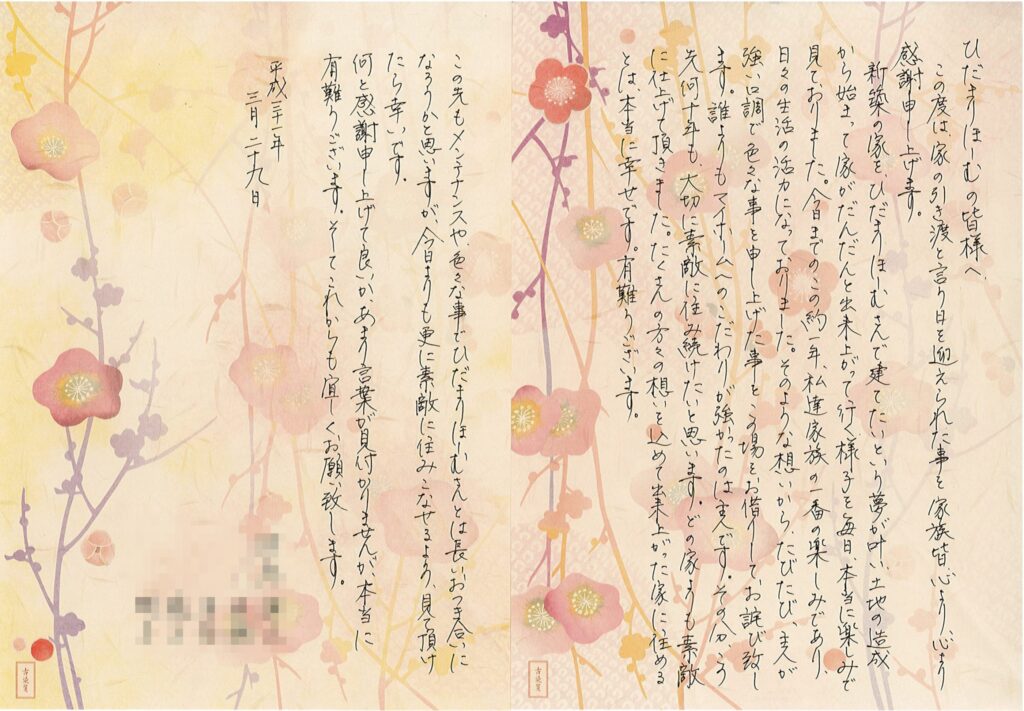 ひだまりほーむの皆様へ、
この度は家の引き渡と言う日を迎えられた事を家族皆、心より心より
感謝申し上げます。
新築の家を、ひだまりほーむさんで建てたいという夢が叶い、土地の造成
から始まって家がだんだんと出来上がって行く様子を毎日、本当に楽しみで
見ておりました。今日までの、この約一年、私達家族の一番の楽しみであり、
日々の生活の活力になっておりました。そのような想いから、たびたび、主人が
強い口調で色々な事を申し上げた事を、この場をお借りしてお詫び致し
ます。誰よりもマイホームへのこだわりが強かったのは主人です。その分、こう
先何十年も、大切に素敵に住み続けたいと思います。どの家よりも素敵
に仕上げて頂きました。たくさんの方々の想いを込めて出来上がった家に住める
とは本当に幸せです。有難うございます。
この先もメンテナンスや、色々な事でひだまりほーむさんとは長いおつき合いに
なろうかと思いますが、今日よりも更に素敵に住みこなせるよう、見て頂け
たら幸いです。
何と感謝申し上げて良いか、あまり言葉が見付かりませんが、本当に
有難うございます。そしてこれからも宜しくお願い致します。
平成二十一年
三月二十九日